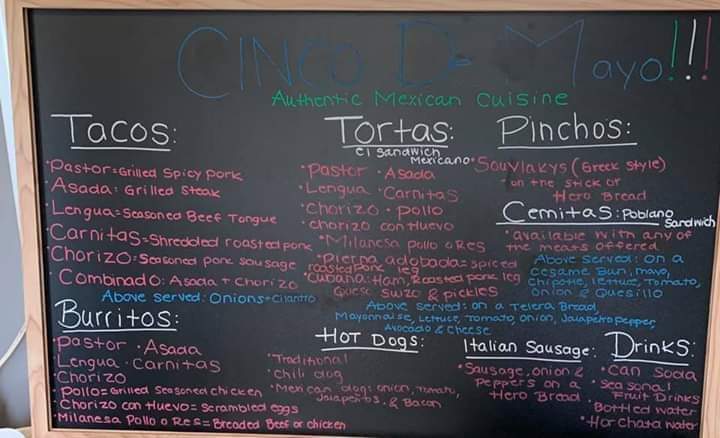 CINCO De Mayo!!!
Authentic Mexican Cuisine
Tacos:
•Pastor=Grilled Spicy pork
•Asada: Grilled Steak
•Lengua=Seasoned Beef Tongue
•Carnitas=Shredded roasted pork
•Chorizo=Seasoned pork sausage
•Combinado: Asada + Chorizo
Above served: Onions+Cilantro
Burritos:
•Pastor •Asada
•Lengua •Carnitas
•Chorizo
•Pollo=Grilled Seasoned chicken
•Chorizo con Huevo=Scrambled eggs
•Milanesa Pollo o Res=Breaded Beef or chicken
Tortas:
el Sandwich
Mexicano
•Pastor •Asada
•Lengua •Carnitas
•Chorizo •pollo
•chorizo con Huevo
•Milanesa pollo o Res
•Pierna adobada=spiced
roasted Pork leg
•Cubana: Ham, Roasted pork leg
Quesillo & pickles
Above served: on a Telera Bread,
Mayonnaise, Lettuce, Tomato, onion, Jalapeño Pepper,
Avocado & cheese
Hot Dogs:
•Traditional
•Chili dog
•Mexican dog: onion, Tomato,
Jalapeños, & Bacon
Pinchos:
•Souvlakys (Greek style)
•on the stick or
Hero Bread
Cemitas: Poblano
Sandwich
•available with any of
the meats offered
Above Served: on a
cesame Bun, mayo,
Chipotle, Lettuce, Tomato,
onion & Quesillo
Italian Sausage:
•Sausage, onion &
peppers on a
Hero Bread
Drinks:
•Can Soda
•Seasonal
Fruit Drinks
•Bottled water
•Horchata water